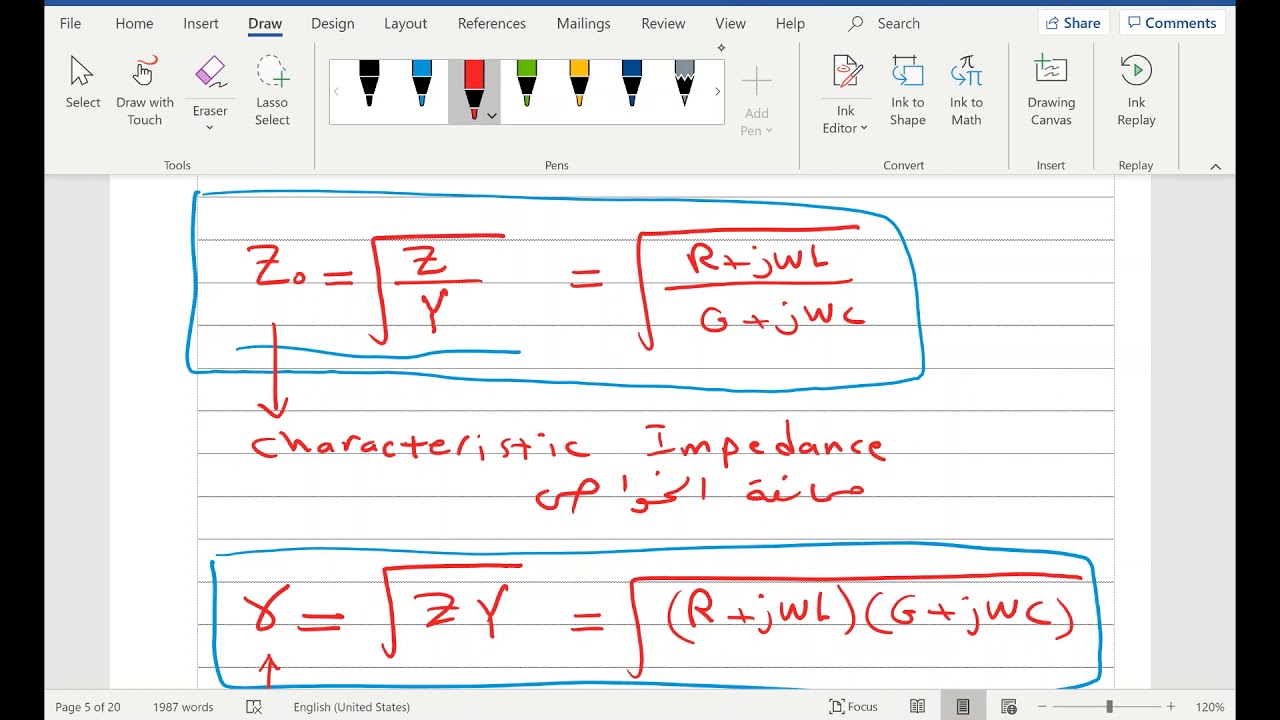 File Home Insert Draw Design Layout References Mailings Review View Help Search Share Comments
Select Draw with Touch Eraser Lasso Select Add Pen Ink Editor Ink to Shape Ink to Math Drawing Canvas Ink Replay
Tools Pens Convert Insert Replay
Z₀ = √(Z/Y) = √((R+jWL)/(G+jWC))
Characteristic Impedance
ممانعة الخواص
γ = √(ZY) = √((R+jWL)(G+jWC))
Page 5 of 20 1987 words English (United States) Focus 120%